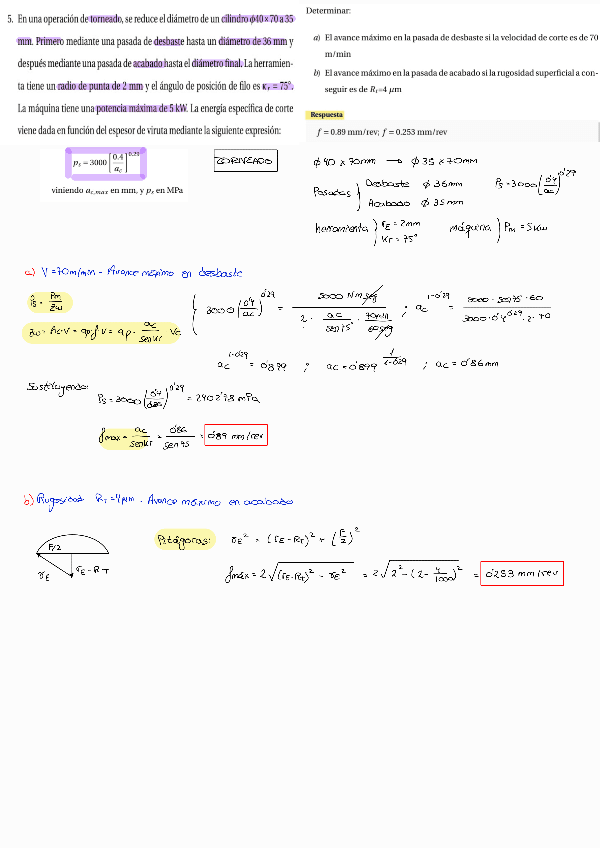 5. En una operación de torneado, se reduce el diámetro de un cilindro ϕ40 x 70 a 35
mm. Primero mediante una pasada de desbaste hasta un diámetro de 36 mm y
después mediante una pasada de acabado hasta el diámetro final. La herramien-
ta tiene un radio de punta de 2 mm y el ángulo de posición de filo es κr = 75°.
La máquina tiene una potencia máxima de 5 kW. La energía específica de corte
viene dada en función del espesor de viruta mediante la siguiente expresión:
ps = 3000 [0.4/ac]^0.29
viniendo ac,max en mm, y ps en MPa
Determinar:
a) El avance máximo en la pasada de desbaste si la velocidad de corte es de 70
m/min
b) El avance máximo en la pasada de acabado si la rugosidad superficial a con-
seguir es de Rt=4 μm
Respuesta
f = 0.89 mm/rev; f = 0.253 mm/rev
TORNEADO
ϕ 40 x 70mm → ϕ 35 x 70mm
Pasadas
Desbaste ϕ 36mm
Acabado ϕ 35mm
Ps = 3000 (0'4/ac)^0'29
herramienta
rE = 2mm
Kr = 75°
máquina
Pm = 5kW
a) V = 70m/min - Avance máximo en desbaste
Ps = Pm/Zw
Zw = Ac·V = ap·f·V = ap · ac/senKr · Vc
3000 (0'4/ac)^0'29 = 5000 N·m/seg / (2 · ac/sen75° · 70min/60seg) ; ac^1-0'29 = 5000 · sen75 · 60 / 3000 · 0'4^0'29 · 2 · 70
ac^1-0'29 = 0'899 ; ac = 0'899^(1/1-0'29) ; ac = 0'86mm
Sustituyendo:
Ps = 3000 (0'4/0'86)^0'29 = 2402'78 MPa
fmax = ac/senKr = 0'86/sen75 = 0'89 mm/rev
b) Rugosidad RT = 4μm - Avance máximo en acabado
F/2
rE
rE - RT
Pitágoras:
rE² = (rE - RT)² + (F/2)²
fmáx = 2√((rE - RT)² - rE²) = 2√(2² - (2 - 4/1000)²) = 0'253 mm/rev